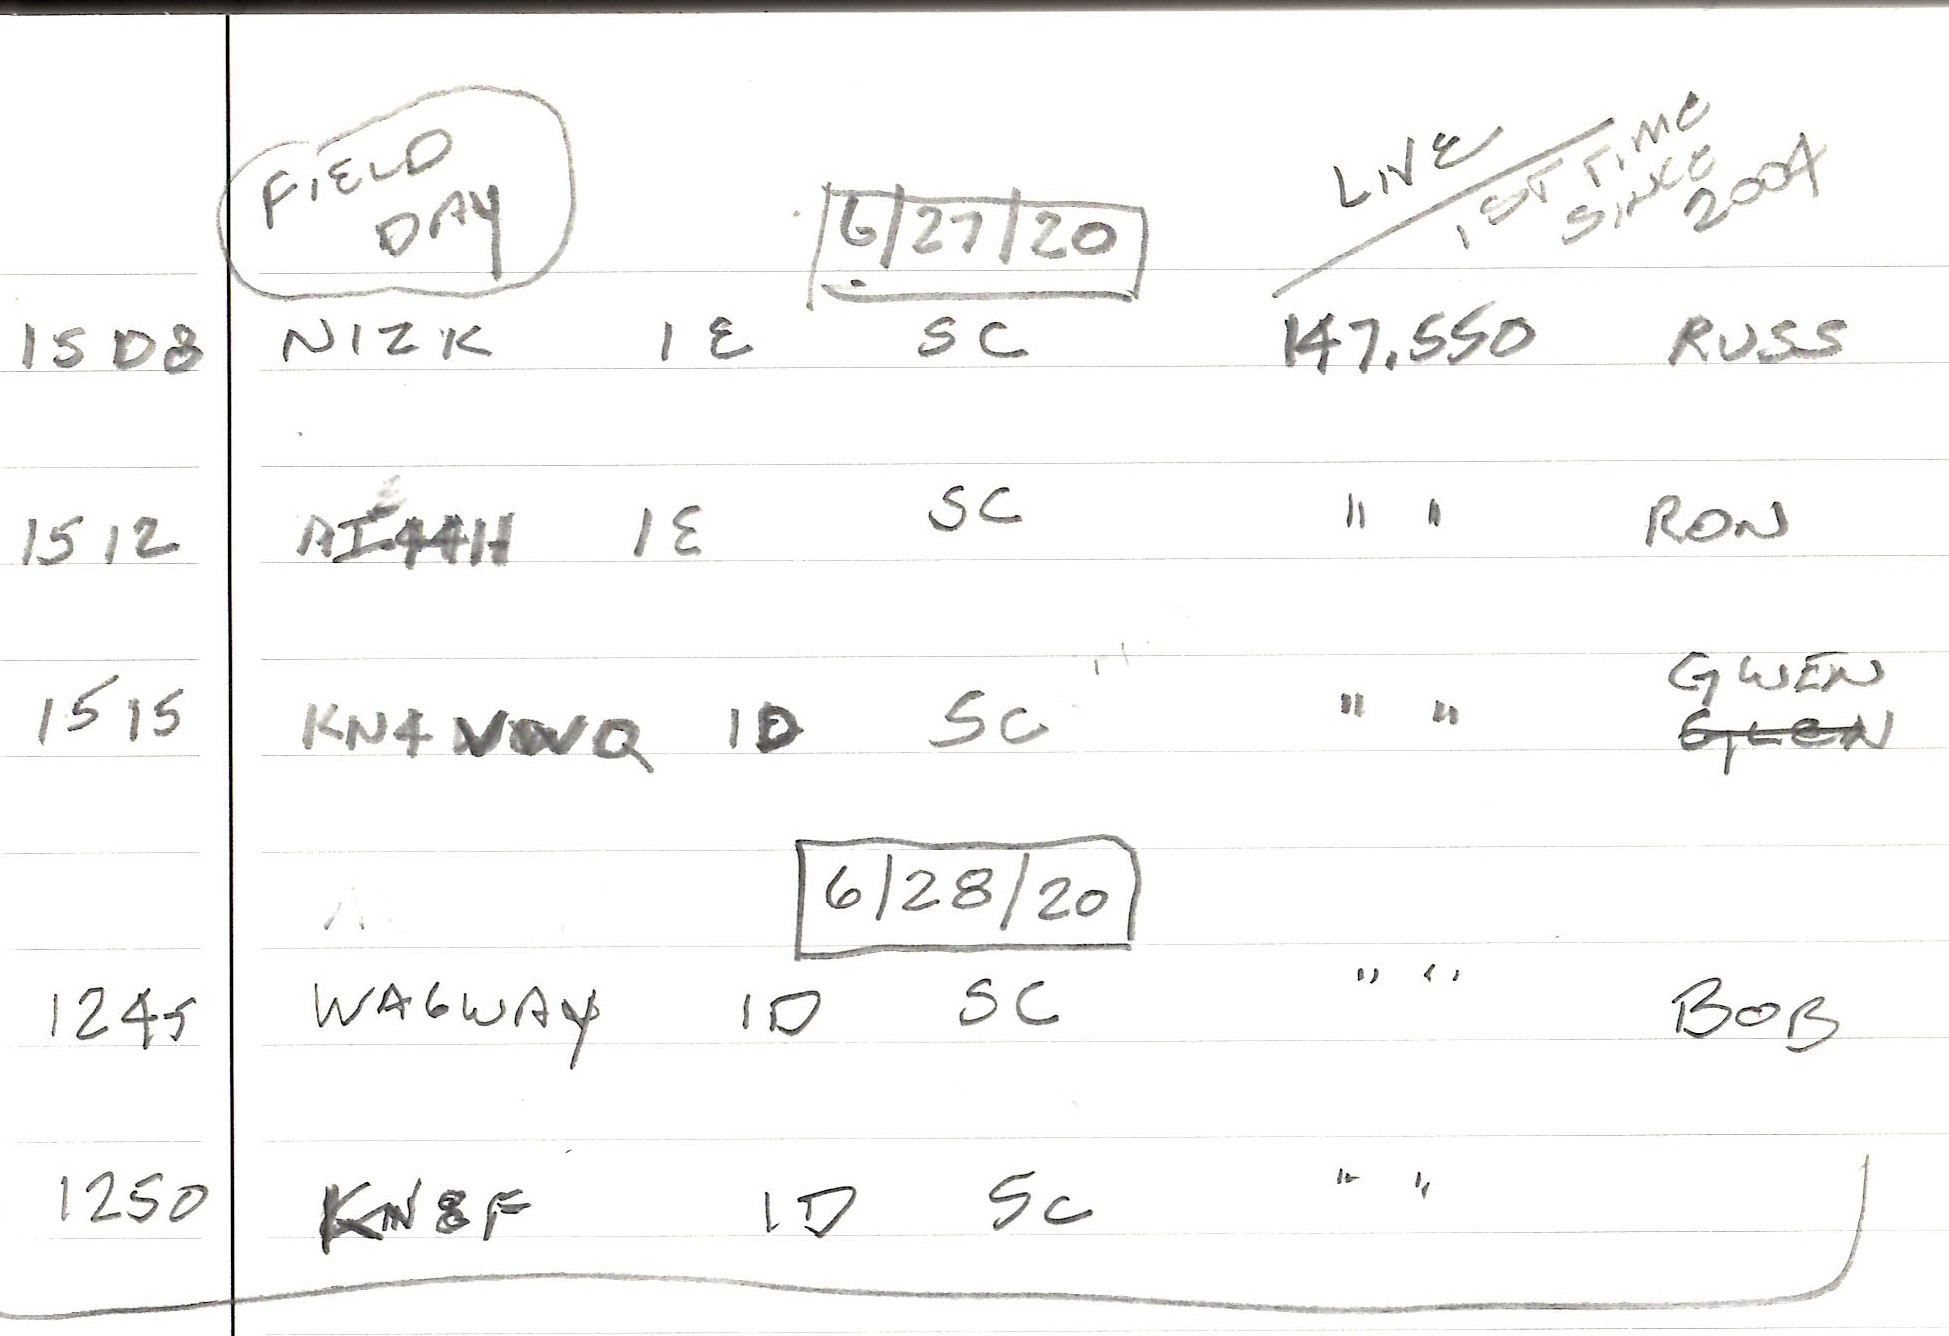 FIELD
DAY
6/27/20
LIVE
1ST TIME
SINCE
2004
1508 N1ZK 1E SC 147.550 RUSS
1512 1E SC " " RON
GWEN
1515 1D SC " " GLEN
6/28/20
1245 WA6WAY 1D SC " " BOB
1250 KN8F 1D SC " "